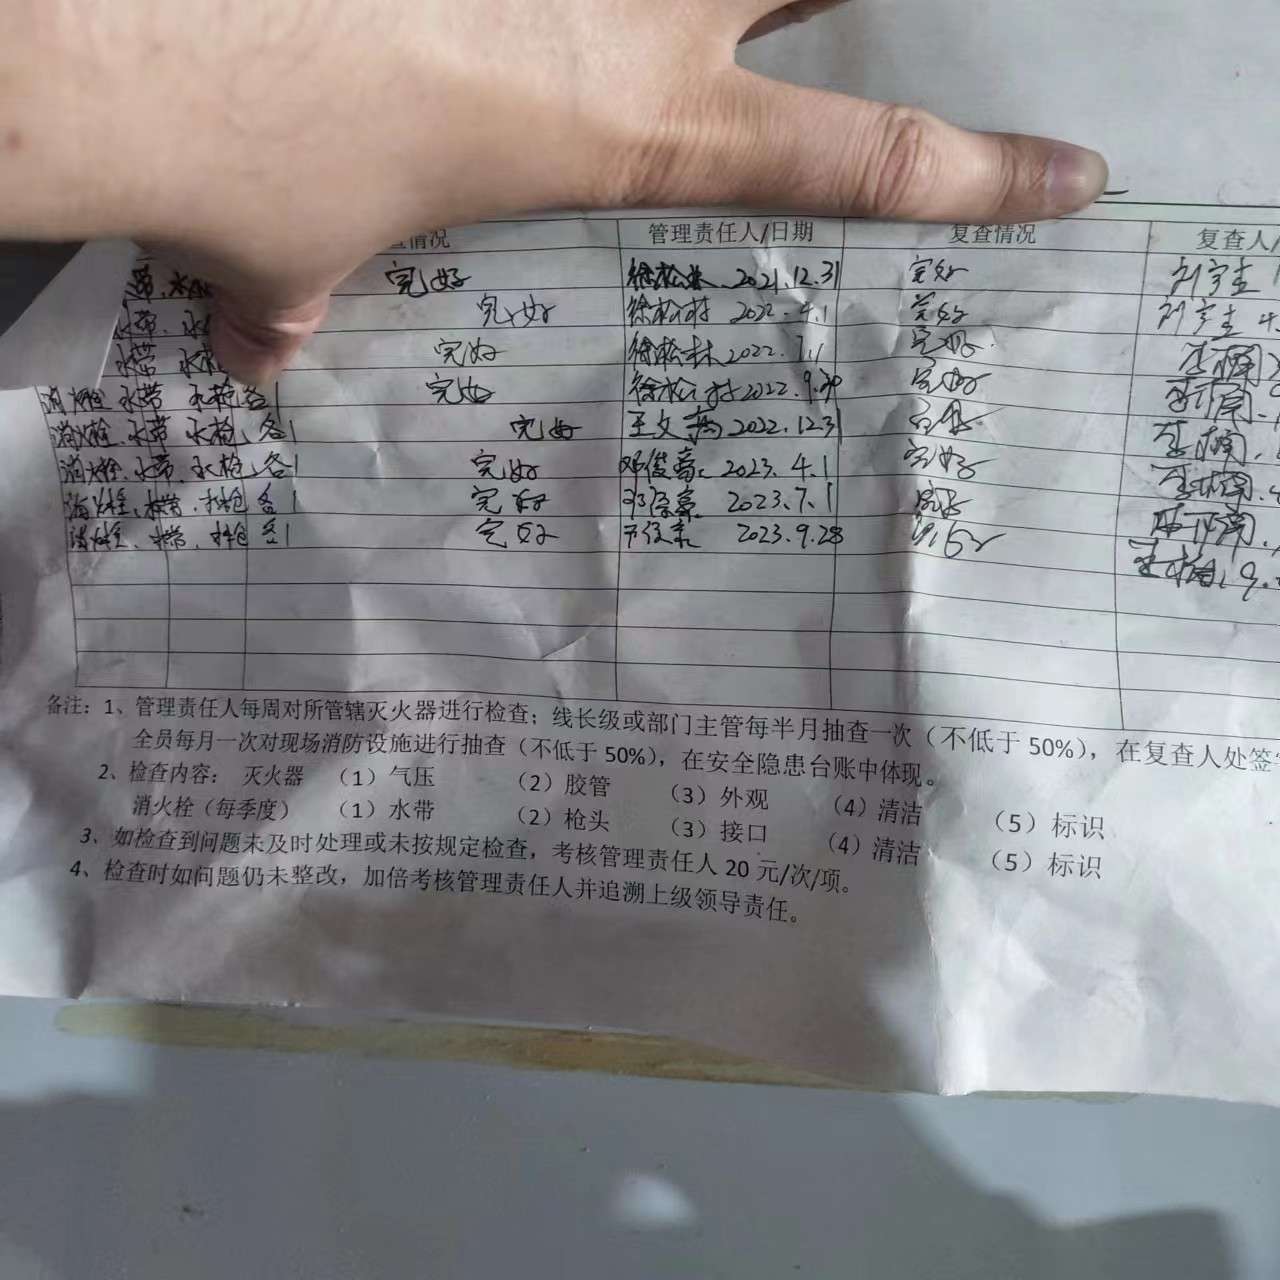 查情况 管理责任人/日期 复查情况 复查人/
带、水 完好 徐松林 2021.12.31 完好 刘宇生
水带、水 完好 徐松林 2022.4.1 完好 刘宇生 4.
水带 水枪 完好 徐松林 2022.7.1 完好 李楠
消火栓 水带 水枪各1 完好 徐松林 2022.9.30 完好 李楠
消火栓、水带 水枪、各1 完好 王文 2022.12.31 完好 李楠
消火栓、水带、水枪、各1 完好 邓俊豪 2023.4.1 完好 李楠
消火栓、水带、水枪 各1 完好 邓俊豪 2023.7.1 完好 李楠
消火栓、水带、水枪 各1 完好 2023.9.28 完好 李楠、9.
备注：1、管理责任人每周对所管辖灭火器进行检查；线长级或部门主管每半月抽查一次（不低于50%），在复查人处签字
全员每月一次对现场消防设施进行抽查（不低于50%），在安全隐患台账中体现。
2、检查内容： 灭火器 （1）气压 （2）胶管 （3）外观 （4）清洁 （5）标识
消火栓（每季度） （1）水带 （2）枪头 （3）接口 （4）清洁 （5）标识
3、如检查到问题未及时处理或未按规定检查，考核管理责任人20元/次/项。
4、检查时如问题仍未整改，加倍考核管理责任人并追溯上级领导责任。